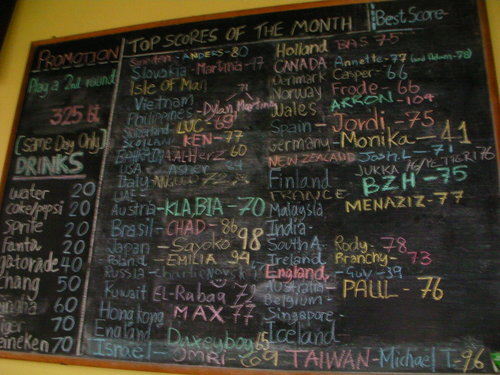 PROMOTION
Play a 2nd round
325 bt
[same Day Only]
DRINKS
water 20
coke/pepsi 20
Sprite 20
Fanta 20
gatorade 40
chang 50
singha 60
tiger 70
heineken 70
TOP SCORES OF THE MONTH
Best Score-
Sweden - ANDERS - 80
Slovakia - Martina - 77
Isle of Man
Vietnam -
Philippines - Dylan, Martino 71
Switzerland LUC - 69
SCOTLAND KEN - 77
60
USA -
Italy -
UAE -
Austria - KLABIA - 70
Brasil - CHAD - 86
Japan - Sayoko 98
Poland - EMILIA 94
Russia -
Kuwait EL-Rabaa 72
Hong kong MAX 77
England Daxeyboy 65
Israel - OMRI - 69
Holland BAS 75
CANADA Annette - 77
Denmark Casper - 66
Norway Frode - 66
Wales ARRON - 104
Spain - Jordi - 75
Germany - Monika - 41
NEW ZEALAND Josh L - 71
Finland JUKKA 76
FRANCE BZH - 75
Malaysia MENAZIZ - 77
India -
South A - Rody - 78
Ireland - Branchy - 73
England - Guy - 39
Australia - PAUL - 76
Belgium -
Singapore -
Iceland
TAIWAN - Michael T - 96